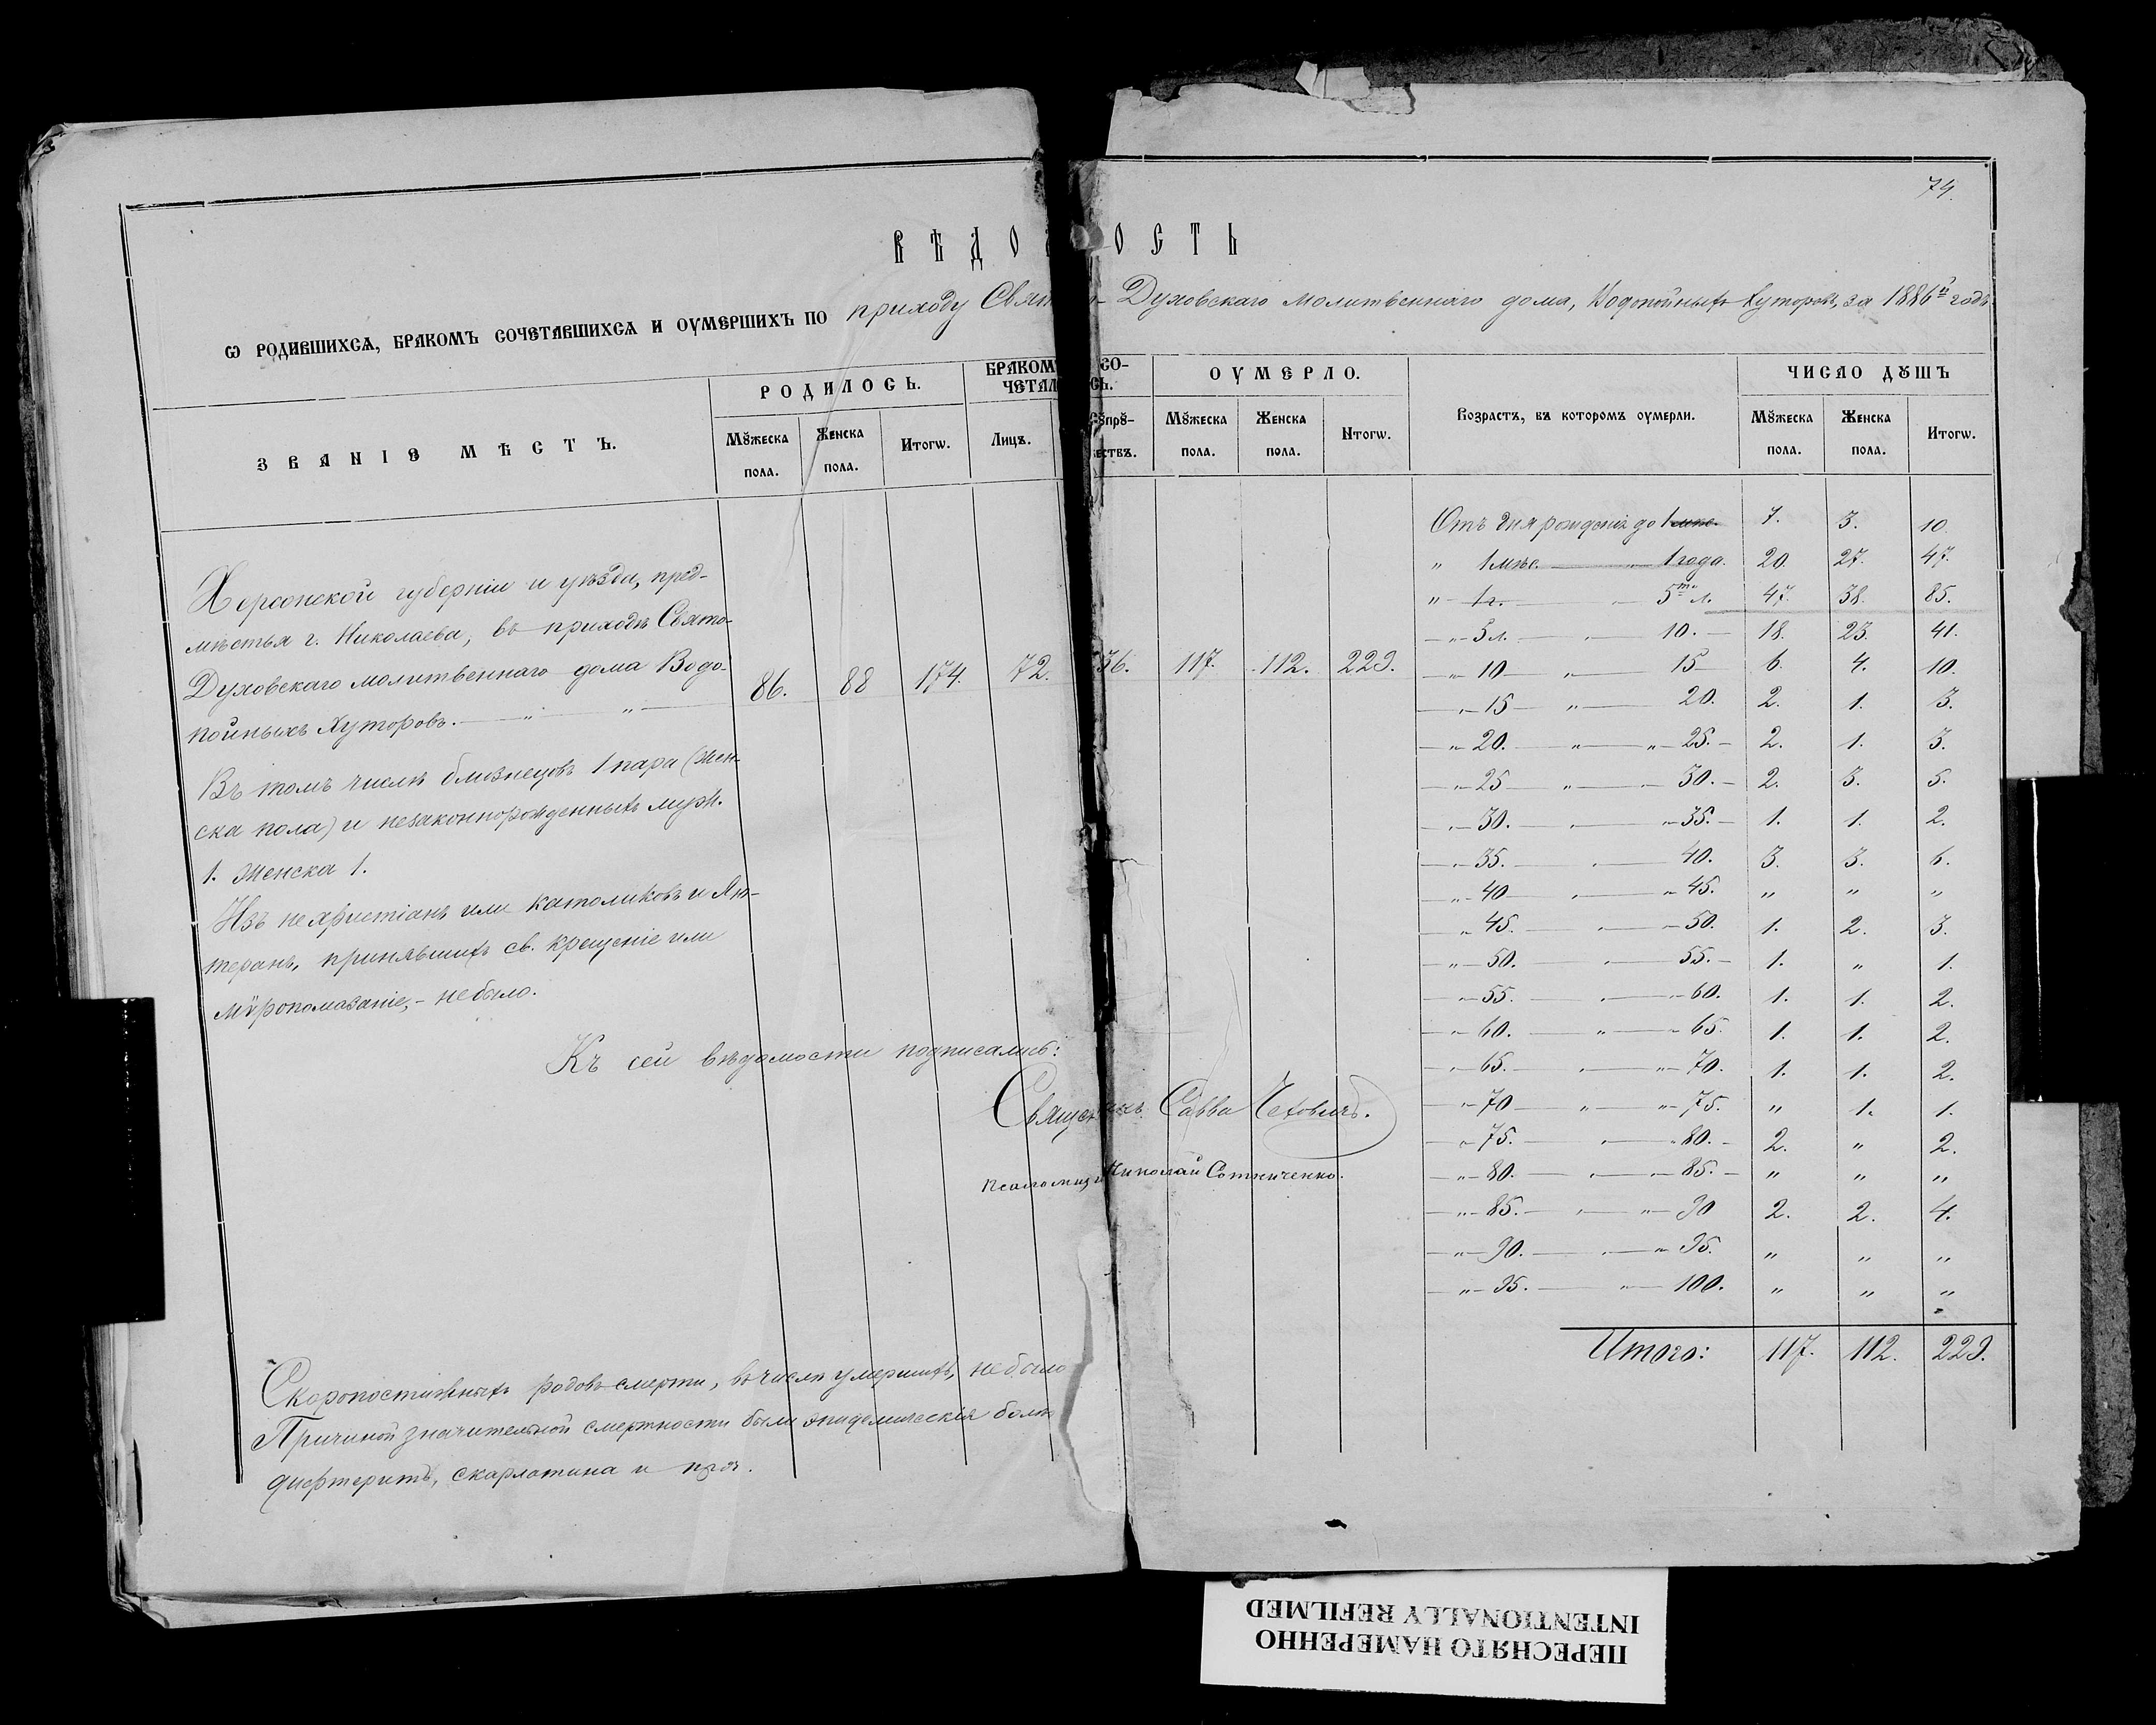 74.
ВѢДО ОСТЬ
Ѡ РОДИВШИХСѦ, БРАКОМЪ СОЧЕТАВШИХСѦ И ОУМЕРШИХЪ ПО приходу Свят о-Духовскаго молитвеннаго дома, Водопойныхъ Хуторовъ, за 1886й годъ.
ЗВАНІЕ МѢСТЪ.
РОДИЛОСЬ.
Мꙋжеска пола.
Женска пола.
Итогѡ.
БРАКОМ СО-
ЧЕТАЛ СЬ.
Лицъ.
Сꙋпрꙋ-
жествъ.
ОУМЕРЛО.
Мꙋжеска пола.
Женска пола.
Итогѡ.
Возрастъ, въ которомъ оумерли.
ЧИСЛО ДꙊШЪ
Мꙋжеска пола.
Женска пола.
Итогѡ.
Херсонской губерніи и уѣзда, пред-
мѣстья г. Николаева, въ приходѣ Свято-
Духовскаго молитвеннаго дома Водо-
пойныхъ Хуторовъ. — „ — „ —
86. 88 174. 72. 36. 117. 112. 229.
Въ томъ числѣ близнецовъ 1 пара (жен-
ска пола) и незаконнорожденныхъ муж.
1. Женска 1.
Изъ нехристіанъ или католиковъ и Лю-
теранъ, принявшихъ св. крещеніе или
мѵропомазаніе, - не было.
Къ сей вѣдомости подписались:
Священ икъ Савва
Николай Сотниченко.
Скоропостижныхъ родовъ смерти, въ числѣ умершихъ, не было
Причиной значительной смертности были эпидемическія болѣ
дифтеритъ, скарлатина и проч.
Отъ дня рожденія до 1 мѣс. 7. 3. 10
„ 1 мѣс. — „ — 1 года. 20. 27. 47.
„ — 1 г. — „ — 5ти л. 47. 38. 85.
— „ — 5 л. — „ — 10. — 18. 23. 41.
— „ — 10 — „ — 15 — 6. 4. 10.
— „ — 15 — „ — 20. 2. 1. 3.
— „ — 20. — „ — „ — 25. — 2. 1. 3.
— „ — 25 — „ — 30. — 2. 3. 5.
— „ — 30. — „ — „ — 35. — 1. 1. 2.
— „ — 35. — „ — 40. 3. 3. 6.
— „ — 40 — „ — „ 45. „ „ „
— „ — 45. — „ — 50. 1. 2. 3.
— „ — 50. — „ — 55. — 1. „ 1.
— „ — 55. — „ — „ — 60. 1. 1. 2.
— „ — 60. — „ — „ 65. 1. 1. 2.
— „ — 65. — „ — „ — 70. 1. 1. 2.
— „ — 70 — „ — „ — 75. „ 1. 1.
— „ — 75. — „ — „ 80. — 2. „ 2.
— „ — 80. — „ — „ — 85. — „ „ „
— „ — 85. — „ — „ — 90 2. 2. 4.
— „ — 90. — „ — „ 95. „ „ „
— „ — 95. — „ — 100. „ „ „
Итого: 117. 112. 229.
ПЕРЕСНЯТО НАМЕРЕННО
INTENTIONALLY REFILMED